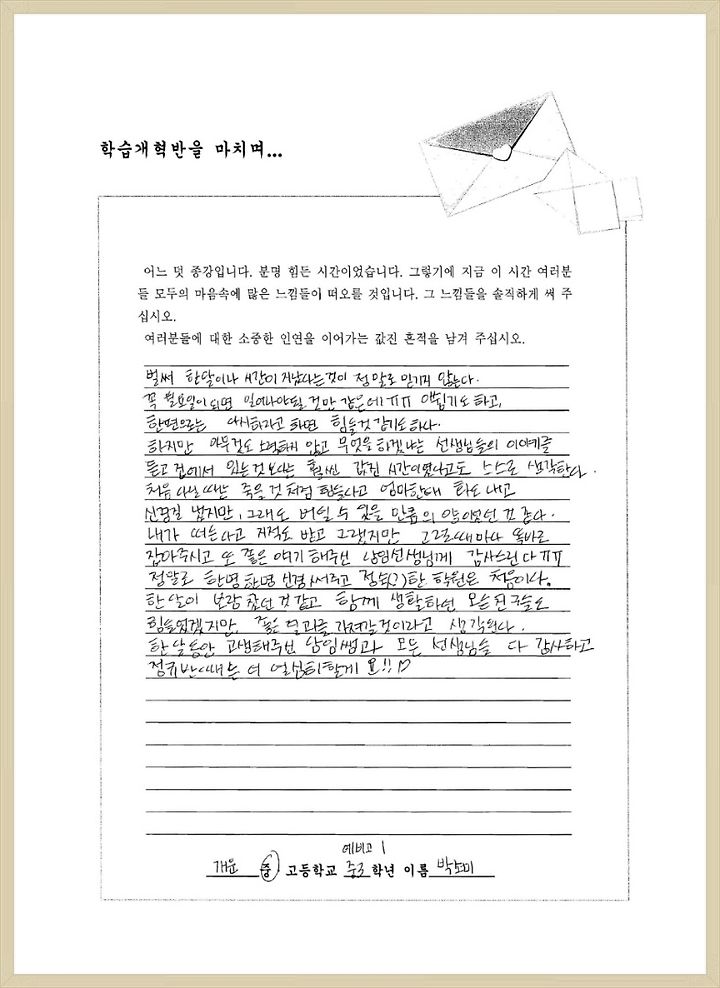 학습개혁반을 마치며...
어느 덧 종강입니다. 분명 힘든 시간이었습니다. 그렇기에 지금 이 시간 여러분
들 모두의 마음속에 많은 느낌들이 떠오를 것입니다. 그 느낌들을 솔직하게 써 주
십시오.
여러분들에 대한 소중한 인연을 이어가는 값진 흔적을 남겨 주십시오.
벌써 한달이나 시간이 지났다는것이 정말로 믿기지 않는다.
꼭 월요일이 되면 일어나야될 것만 같은데 ㅠㅠ 아쉽기도 하고,
한편으로는 다시하라고 하면 힘들것 같기도하다.
하지만 아무것도 노력하지 않고 무엇을 하겠냐는 선생님들의 이야기를
듣고 집에서 있는것 보다는 훨씬 값진 시간이였다고도 스스로 생각한다.
처음 다닐때는 죽을 것 처럼 힘들다고 엄마한테 화도 내고
신경질 냈지만, 그래도 버틸 수 있을 만큼의 양이었던 것 같다.
내가 떠든다고 지적도 받고 그랬지만 그럴때마다 똑바로
잡아주시고 또 좋은 얘기 해주신 담임선생님께 감사드린다 ㅠㅠ
정말로 한명 한명 신경써주고 점속(?)한 학원은 처음이다.
한달이 보람찼던 것 같고 함께 생활하던 모든 친구들도
힘들었겠지만, 좋은 결과를 가져갈것이라고 생각된다.
한달동안 고생해주신 담임쌤과 모든 선생님들 다 감사하고
정규반때는 더 열심히할게요!!♡
예비고 1
개운 중 고등학교 중3 학년 이름 박보미